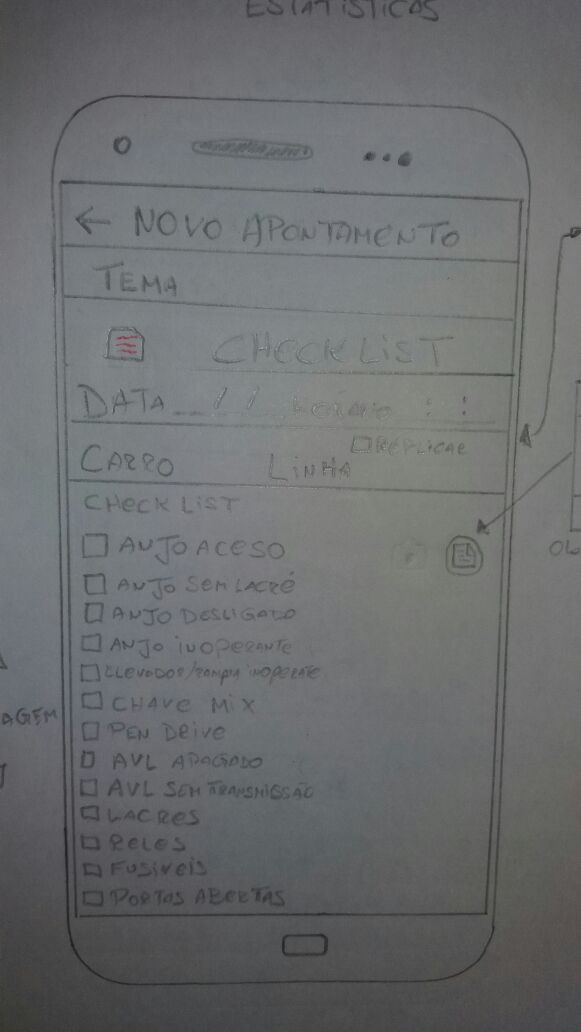 ESTATISTICAS
← NOVO APONTAMENTO
TEMA
CHECKLIST
DATA __/__/__ HORÁRIO : :
REPLICAR
CARRO LINHA
CHECKLIST
ANJO ACESO
ANJO SEM LACRE
ANJO DESLIGADO
ANJO INOPERANTE
CHAVE MIX
PEN DRIVE
AVL APAGADO
AVL SEM TRANSMISSÃO
LACRES
RELES
FUSIVEIS
PORTAS ABERTAS
AGEM